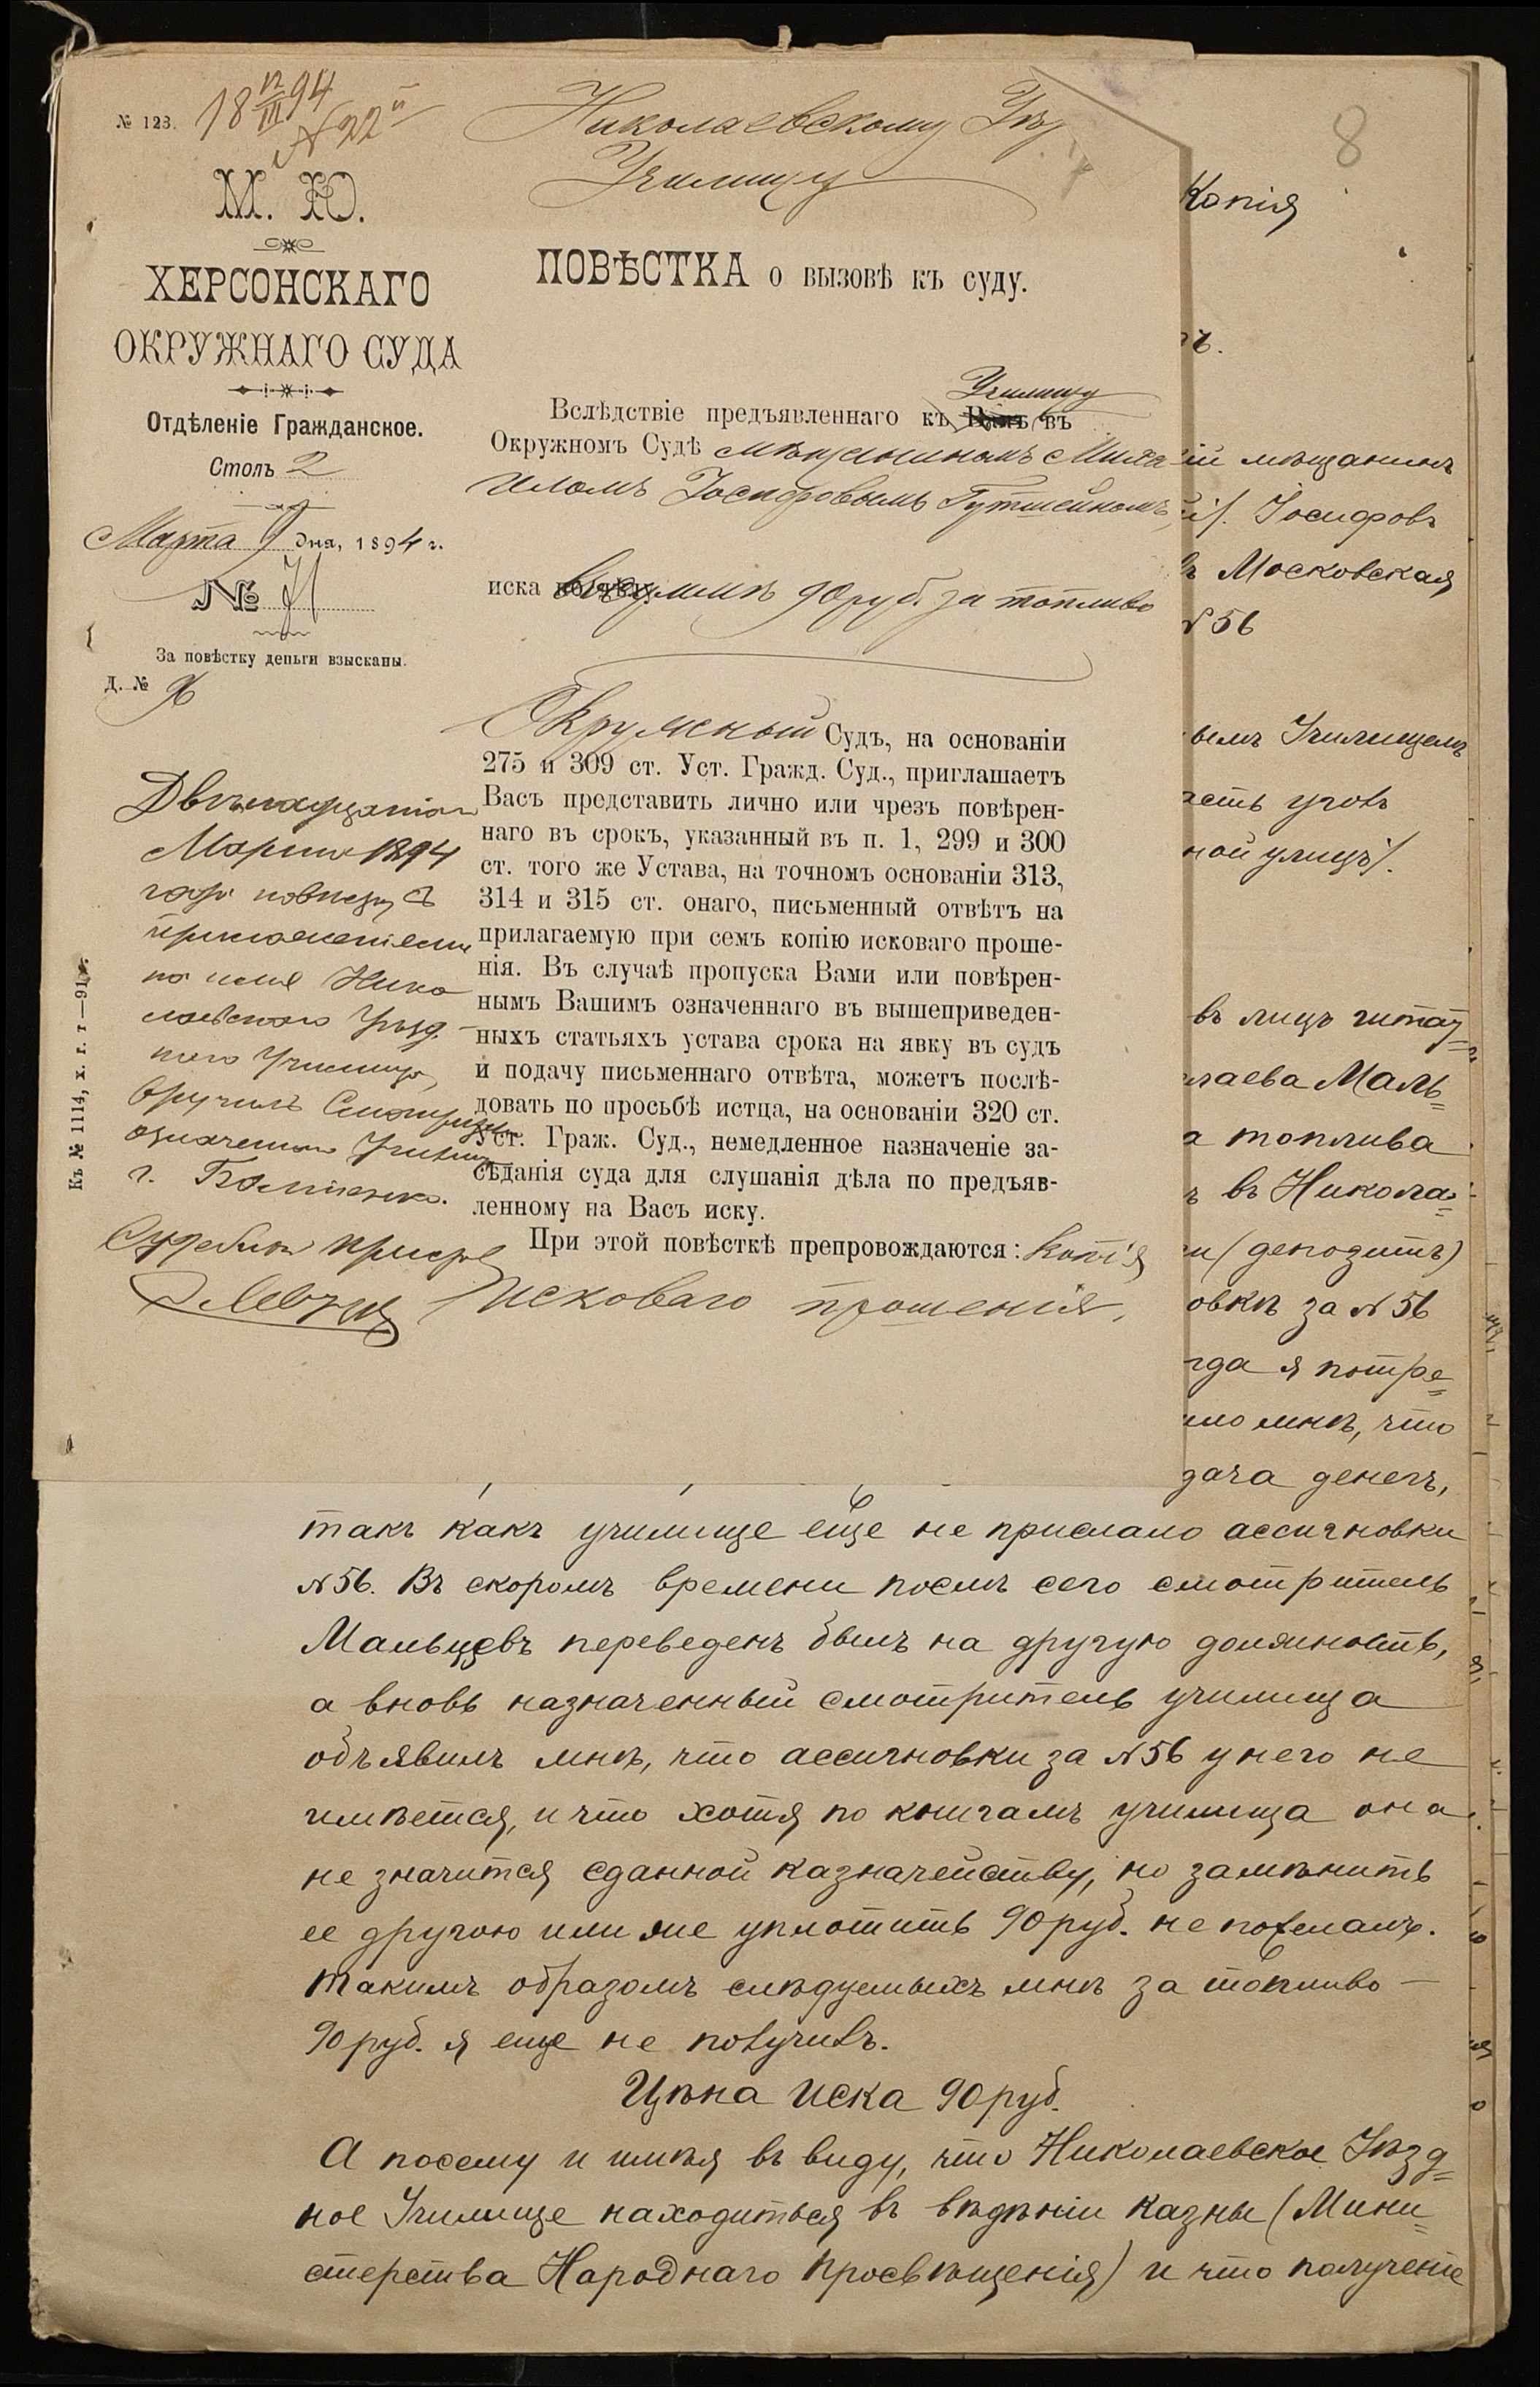 № 123.
18 12/III 94
№ 22й
М. Ю.
ХЕРСОНСКАГО
ОКРУЖНАГО СУДА
Отдѣленіе Гражданское.
Столъ 2
Марта 9 дня, 1894 г.
№
За повѣстку деньги взысканы.
Д. № 96
Двѣнадцатаго
Марта 1894
года повѣстку съ
приложеніемъ
на имя Нико
лаевскаго Уѣзд-
наго Училища,
вручилъ Смотрителю
означеннаго Училища
г.
Судебный приставъ
Къ № 1114, х. г. т.—91 г.
Николаевскому Уѣз
Училищу
ПОВѢСТКА о вызовѣ къ суду.
Училищу
Вслѣдствіе предъявленнаго къ Вамъ въ
Окружномъ Судѣ мѣщаниномъ Миха
иломъ Іосифовымъ Гутшейномъ,
иска въ суммѣ 90 руб. за топливо
Окружный Судъ, на основаніи
275 и 309 ст. Уст. Гражд. Суд., приглашаетъ
Васъ представить лично или чрезъ повѣрен-
наго въ срокъ, указанный въ п. 1, 299 и 300
ст. того же Устава, на точномъ основаніи 313,
314 и 315 ст. онаго, письменный отвѣтъ на
прилагаемую при семъ копію исковаго проше-
нія. Въ случаѣ пропуска Вами или повѣрен-
нымъ Вашимъ означеннаго въ вышеприведен-
ныхъ статьяхъ устава срока на явку въ судъ
и подачу письменнаго отвѣта, можетъ послѣ-
довать по просьбѣ истца, на основаніи 320 ст.
Уст. Граж. Суд., немедленное назначеніе за-
сѣданія суда для слушанія дѣла по предъяв-
ленному на Васъ иску.
При этой повѣсткѣ препровождаются: копія
исковаго прошенія.
8
Копія
ъ.
ій мѣщанинъ
й/. Іосифовъ
ъ Московская
№ 56
вымъ Училищемъ
асть уголъ
ной улицъ/.
въ лицѣ штат=
лаева Маль=
а топлива
ъ въ Никола=
и (депозитъ)
овкѣ за № 56
гда я потре=
ило мнѣ, что
дача денегъ,
такъ какъ училище еще не прислало ассигновки
№ 56. Въ скоромъ времени послѣ сего смотритель
Мальцевъ переведенъ былъ на другую должность,
а вновь назначенный смотритель училища
объявилъ мнѣ, что ассигновки за № 56 у него не
имѣется, и что хотя по книгамъ училища она
не значится сданной казначейству, но замѣнить
ее другою или же уплотить 90 руб. не пожелалъ.
Такимъ образомъ слѣдуемыхъ мнѣ за топливо —
90 руб. я еще не получилъ.
Цѣна иска 90 руб.
А посему и имѣя въ виду, что Николаевское Уѣзд=
ное Училище находиться въ вѣдѣніи казны (Мини=
стерства Народнаго Просвѣщенія) и что получение